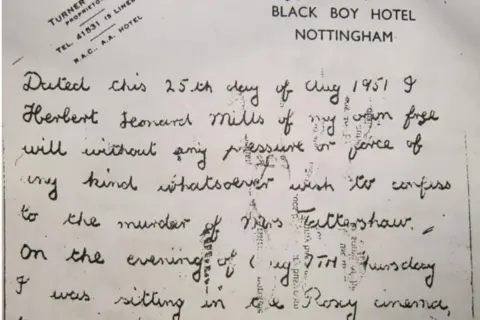 TURNER
PROPRIETOR
TEL 41531 15 LINES
R.A.C., A.A. HOTEL
BLACK BOY HOTEL
NOTTINGHAM
Dated this 25th day of Aug 1951 I
Herbert Leonard Mills of my own free
will without any pressure or force of
any kind whatsoever wish to confess
to the murder of Mrs Tattershaw.
On the evening of Aug 9TH Thursday
I was sitting in the Roxy cinema,